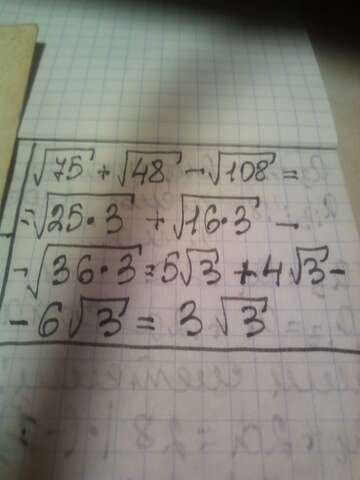 √75 + √48 - √108 =
= √25·3 + √16·3 -
- √36·3 = 5√3 + 4√3 -
- 6√3 = 3√3